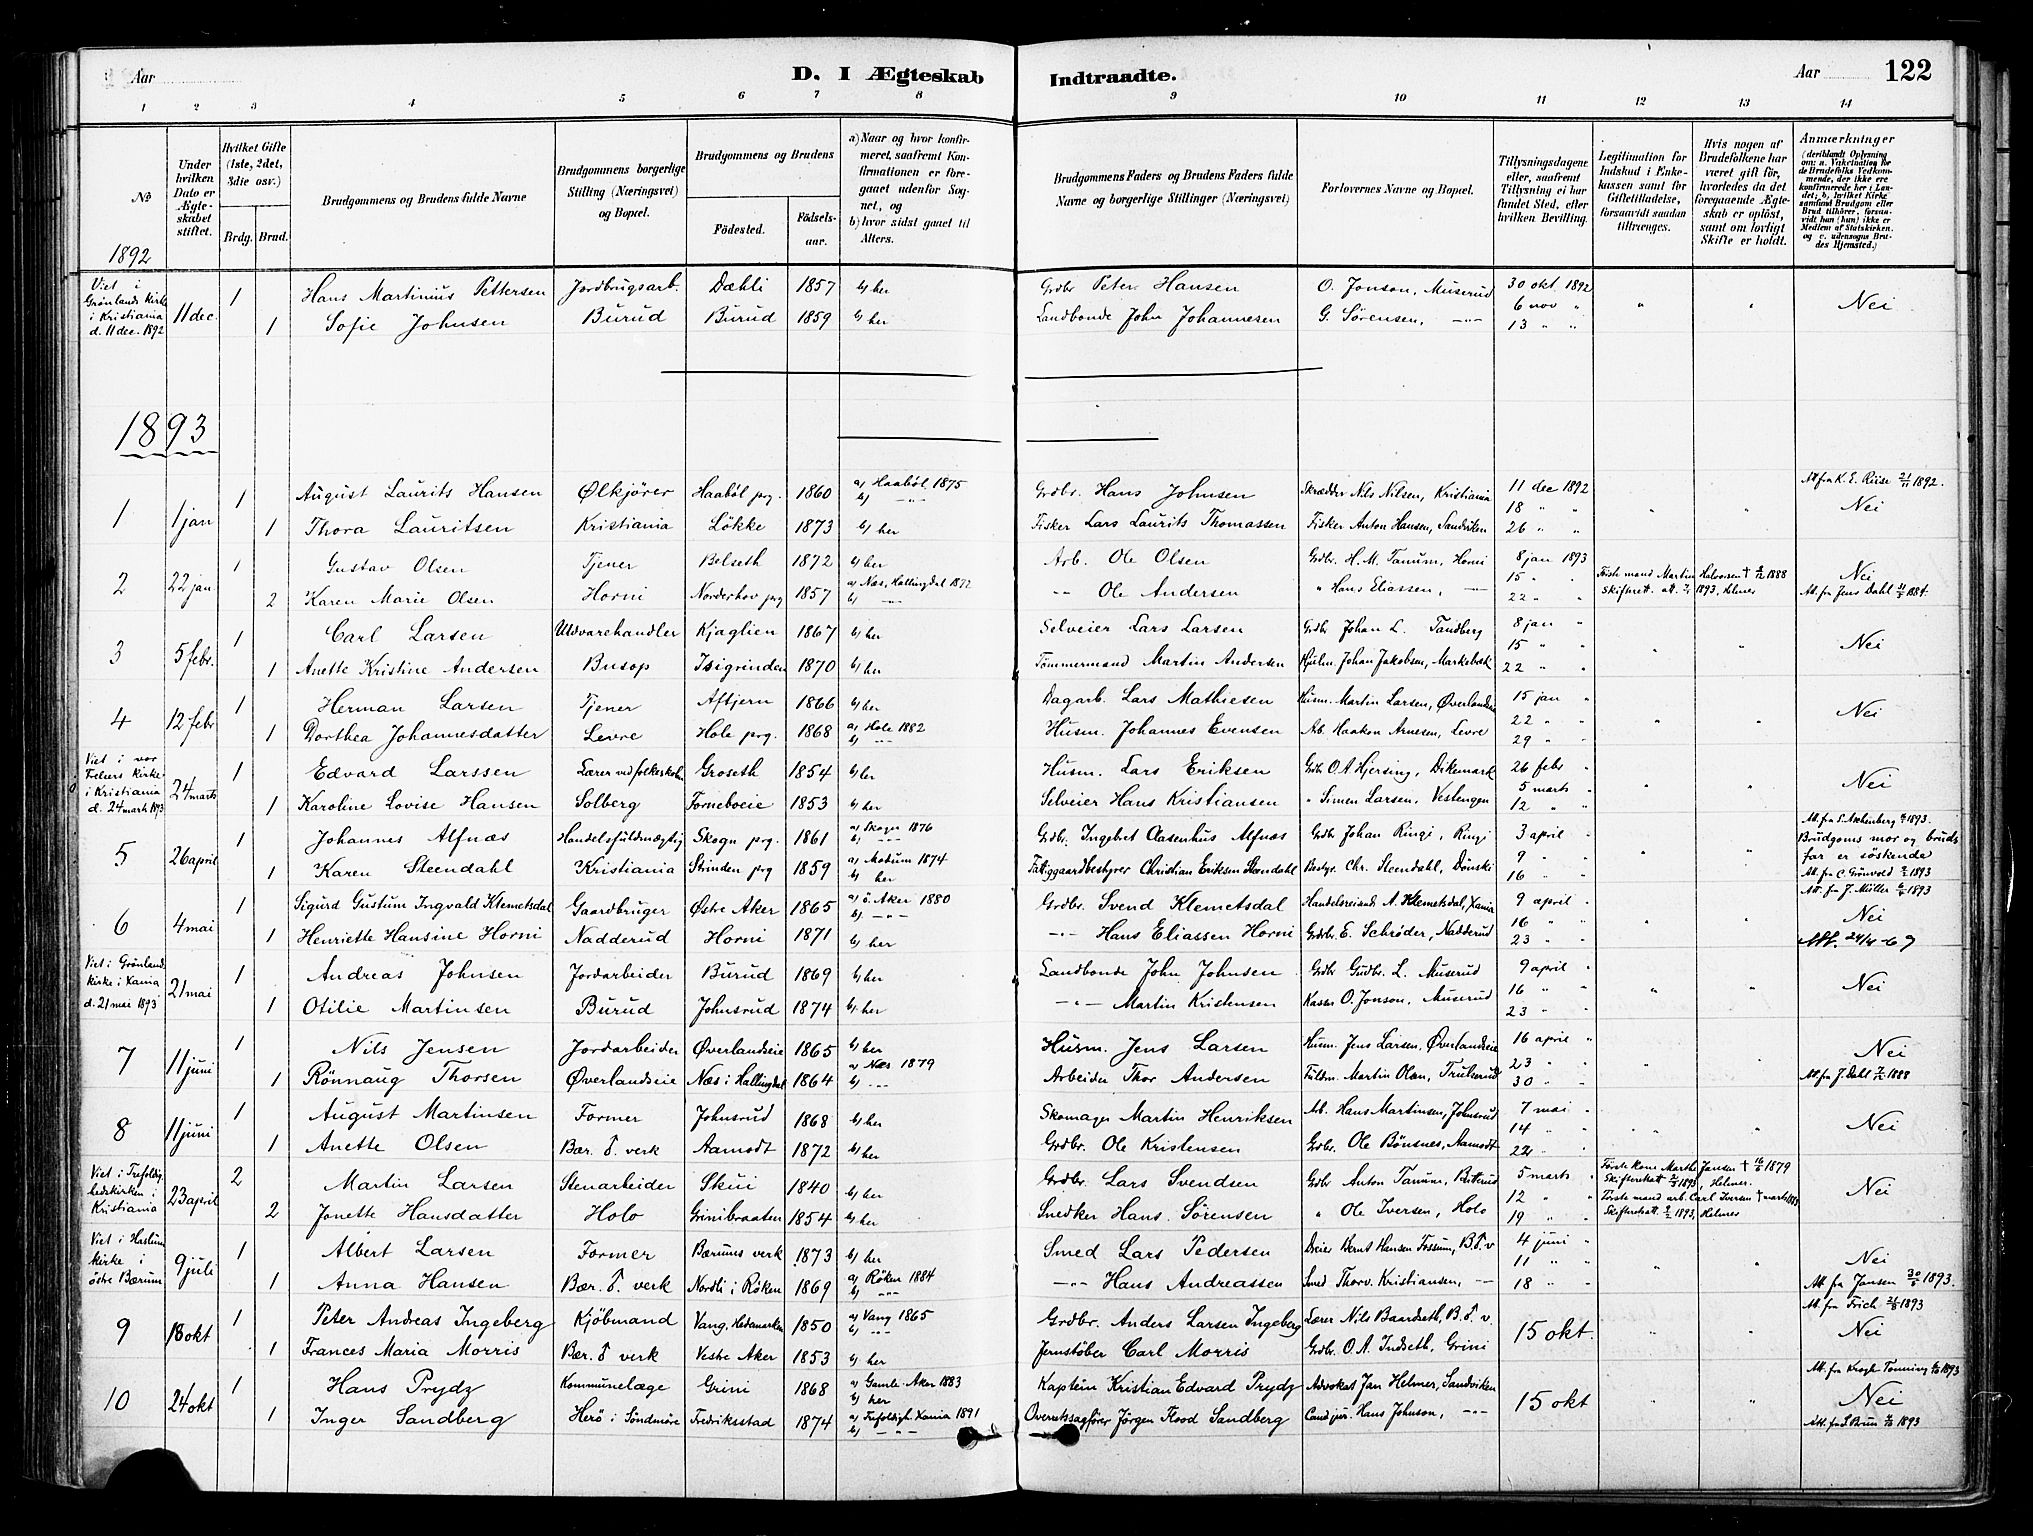 Aar
D. I Ægteskab Indtraadte.
Aar 122
1 2 3 4 5 6 7 8 9 10 11 12 13 14
No
1892
Under hvilken Dato er Ægteskabet stiftet.
Hvilket Gifte (1ste, 2det, 3die osv.)
Brdg. Brud.
Brudgommens og Brudens fulde Navne
Brudgommens borgerlige Stilling (Næringsvei) og Bopæl.
Brudgommens og Brudens
Födested. Födselsaar.
a) Naar og hvor konfirmeret, saafremt Konfirmationen er foregaaet udenfor Sognet, og
b) hvor sidst gaaet til Alters.
Brudgommens Faders og Brudens Faders fulde Navne og borgerlige Stillinger (Næringsvei)
Forlovernes Navne og Bopæl.
Tillysningsdagene eller, saafremt Tillysning ei har fundet Sted, efter hvilken Bevilling.
Legitimation for Indskud i Enkekassen samt for Giftetilladelse, forsaavidt saadan tiltrænges.
Hvis nogen af Brudefolkene har været gift för, hvorledes da det foregaaende Ægteskab er oplöst, samt om lovligt Skifte er holdt.
Anmærkninger (deriblandt Oplysning om: a. Vakcination for de Brudefolks Vedkommende, der ikke ere konfirmerede her i Landet; b. hvilket Kirkesamfund Brudgom eller Brud tilhörer, forsaavidt han (hun) ikke er Medlem af Statskirken, og c. udensogns Brudes Hjemsted.)
Viet i Grønlands Kirke i Kristiania d. 11 dec. 1892
11 dec. 1 Hans Martinius Pettersen Jordbrugsarb. Dæhli 1857 b) her Grdbr Peter Hansen O. Jonson, Muserud 30 okt 1892
1 Sofie Johnsen Burud Burud 1859 b) her Landbonde John Johannesen G. Sørensen, -"- 6 nov " " " Nei
13 " "
1893
1 1 jan 1 August Laurits Hansen Ølkjører Haabøl prg. 1860 a) Haabøl 1875 b) -"- Grdbr. Hans Johnsen Skrædder Nils Nilsen, Kristiania 11 dec 1892 Att fra K. E. Riise 21/11 1892.
18 " " " " Nei
1 Thora Lauritsen Kristiania Løkke 1873 b) her Fisker Lars Laurits Thomassen Fisker Anton Hansen, Sandviken 26 " "
2 22 jan 1 Gustav Olsen Tjener Belseth 1872 b) her Arb. Ole Olsen Grdbr. H. M. Tanum, Horni 8 jan 1893
15 " " Første mand Martin Halvorsen † 1888 Nei
2 Karen Marie Olsen Horni Norderhov prg 1857 a) Nas, Hallingdal 1872 b) -"- -"- Ole Andersen " Hans Eliassen, -"- 22 " " Skifteatt. 1893, Helmes Att. fra Jens Dahl 1884.
3 5 febr. 1 Carl Larsen Uldvarehandler Kjaglien 1867 b) her Selveier Lars Larsen Grdbr Johan L. Tandberg 8 jan "
15 " " " " Nei
1 Anette Kristine Andersen Busop Isigrinden 1870 b) her Tømmermand Martin Andersen Hjulm. Johan Jakobsen, Markebæk 22 " "
4 12 febr 1 Herman Larsen Tjener Aftjern 1866 b) her Dagarb. Lars Mathiesen Husm. Martin Larsen, Øverlandseie 15 jan "
22 " " " " Nei
1 Dorthea Johannesdatter Levre Hole prg. 1868 a) Hole 1882 b) -"- Husm. Johannes Evensen Arb. Haakon Arnesen, Levre 29 " "
Viet i vor Frelsers Kirke i Kristiania d. 24 marts 1893
24 marts 1 Edvard Larssen Lærer ved folkeskolen Groseth 1854 b) her Husm. Lars Eriksen Grdbr O. A. Hjersing, Dikemark 26 febr "
5 marts " " " Nei
1 Karoline Lovise Hansen Solberg Forneboeie 1853 b) her Selveier Hans Kristiansen " Simen Larsen, Vestengen 12 " "
5 26 april 1 Johannes Alfnæs Handelsfuldmægtig Skogn prg. 1861 a) Skogn 1876 b) -"- Grdbr. Ingebet Aasenhus Alfnæs Grdbr Johan Ringi, Ringi 3 april "
9 " " " " Brudgoms mor og bruds far er søskende
1 Karen Steendahl Kristiania Strinden prg 1859 a) Modum 1874 b) her Fattiggaardbestyrer Christian Eriksen Steendahl Bestyr. Chr. Steendahl, Dønski 16 " " Att. fra C. Grünvold 1893
6 4 mai 1 Sigurd Gustum Ingvald Klemetsdal Gaardbruger Østre Aker 1865 a) ö. Aker 1880 b) -"- Grdbr. Svend Klemetsdal Handelsreisende A. Klemetsdal, Xania 9 april " Att. fra J. Müller 1893
16 " " Nei
1 Henriette Hansine Horni Nadderud Horni 1871 b) her -"- Hans Eliassen Horni Grdbr. E. Schrøder, Nadderud 23 " " Att. 24/4-69
Viet i Grønlands kirke i Xania d. 21 mai 1893
21 mai 1 Andreas Johnsen Jordarbeider Burud 1869 b) her Landbonde John Johnsen Grdbr Gudbr. L. Muserud 9 april "
16 " " " " Nei
1 Otilie Martinsen Burud Johnsrud 1874 b) her -"- Martin Kristensen Kasser O. Jonson, Muserud 23 " "
7 11 juni 1 Nils Jensen Jordarbeider Øverlandseie 1865 b) her Husm. Jens Larsen Husm. Jens Larsen, Øverlandseie 16 april "
23 " " " " Nei
1 Rönnaug Thorsen Øverlandseie Næs i Hallingdal 1864 a) Næs 1879 b) -"- Arbeider Thor Andersen Fuldm. Martin Olsen, Trulserud 30 " " Att. fra J. Dahl 1888
8 11 juni 1 August Martinsen Former Johnsrud 1868 b) her Skomager Martin Henriksen Arb. Hans Martinsen, Johnsrud 7 mai "
14 " " " " Nei
1 Anette Olsen Bær. J. verk Aamodt 1872 b) her Grdbr. Ole Kristensen Grdbr. Ole Bønsnes, Aamodt 22 " "
Viet i Trefoldighedskirken i Kristiania
23 april 2 Martin Larsen Stenarbeider Skui 1840 b) her Grdbr. Lars Svendsen Grdbr Anton Tanum, Bitterud 5 marts " Første kone Marthe Jensen † 1879 Skifteratt 1893, Helmer.
12 " " Første mand arb. Carl Iversen † marts Nei
2 Jonette Hansdatter Holo Grinibraaten 1854 b) her Snedker Hans Sörensen " Ole Iversen, Holo 19 " " Skifteratt. 1893, Helmes
Viet i Haslum kirke i østre Bærum
9 juli 1 Albert Larsen Former Bærums verk 1873 b) her Smed Lars Pedersen Dreier Bernt Hansen Fossum, B. J. v 4 juni "
11 " " " " Nei
1 Anna Hansen Bær. J. verk Nordli i Røken 1869 a) Røken 1884 b) -"- -"- Hans Andreassen Smed Thorv. Kristiansen, -"- 18 " " Att. fra Jansen 30/5 1893.
9 18 okt 1 Peter Andreas Ingeberg Kjøbmand Vang, Hedemarken 1850 a) Vang 1865 b) -"- Grdbr. Anders Larsen Ingeberg Lærer Nils Baardseth, B. J. v. 15 okt. " " Att. fra Frich 1893
Nei
1 Frances Maria Morris Bær. J verk Vestre Aker 1853 b) her Jernstøber Carl Morris Grdbr. O. A. Indseth, Grini
10 24 okt 1 Hans Prydz Kommunelæge Grini 1868 a) Gamle Aker 1883 b) her Kaptein Kristian Edvard Prydz Advokat Jan Helmer, Sandviken 15 okt Att. fra Krogh Tonning 1893
Nei
1 Inger Sandberg Herö i Söndmöre Fredriksstad 1874 a) Trefoldigh. Xania 1891 b) -"- Overretssagfører Jörgen Flood Sandberg Cand jur. Hans Johnson, -"- Att. fra S. Brun 1893